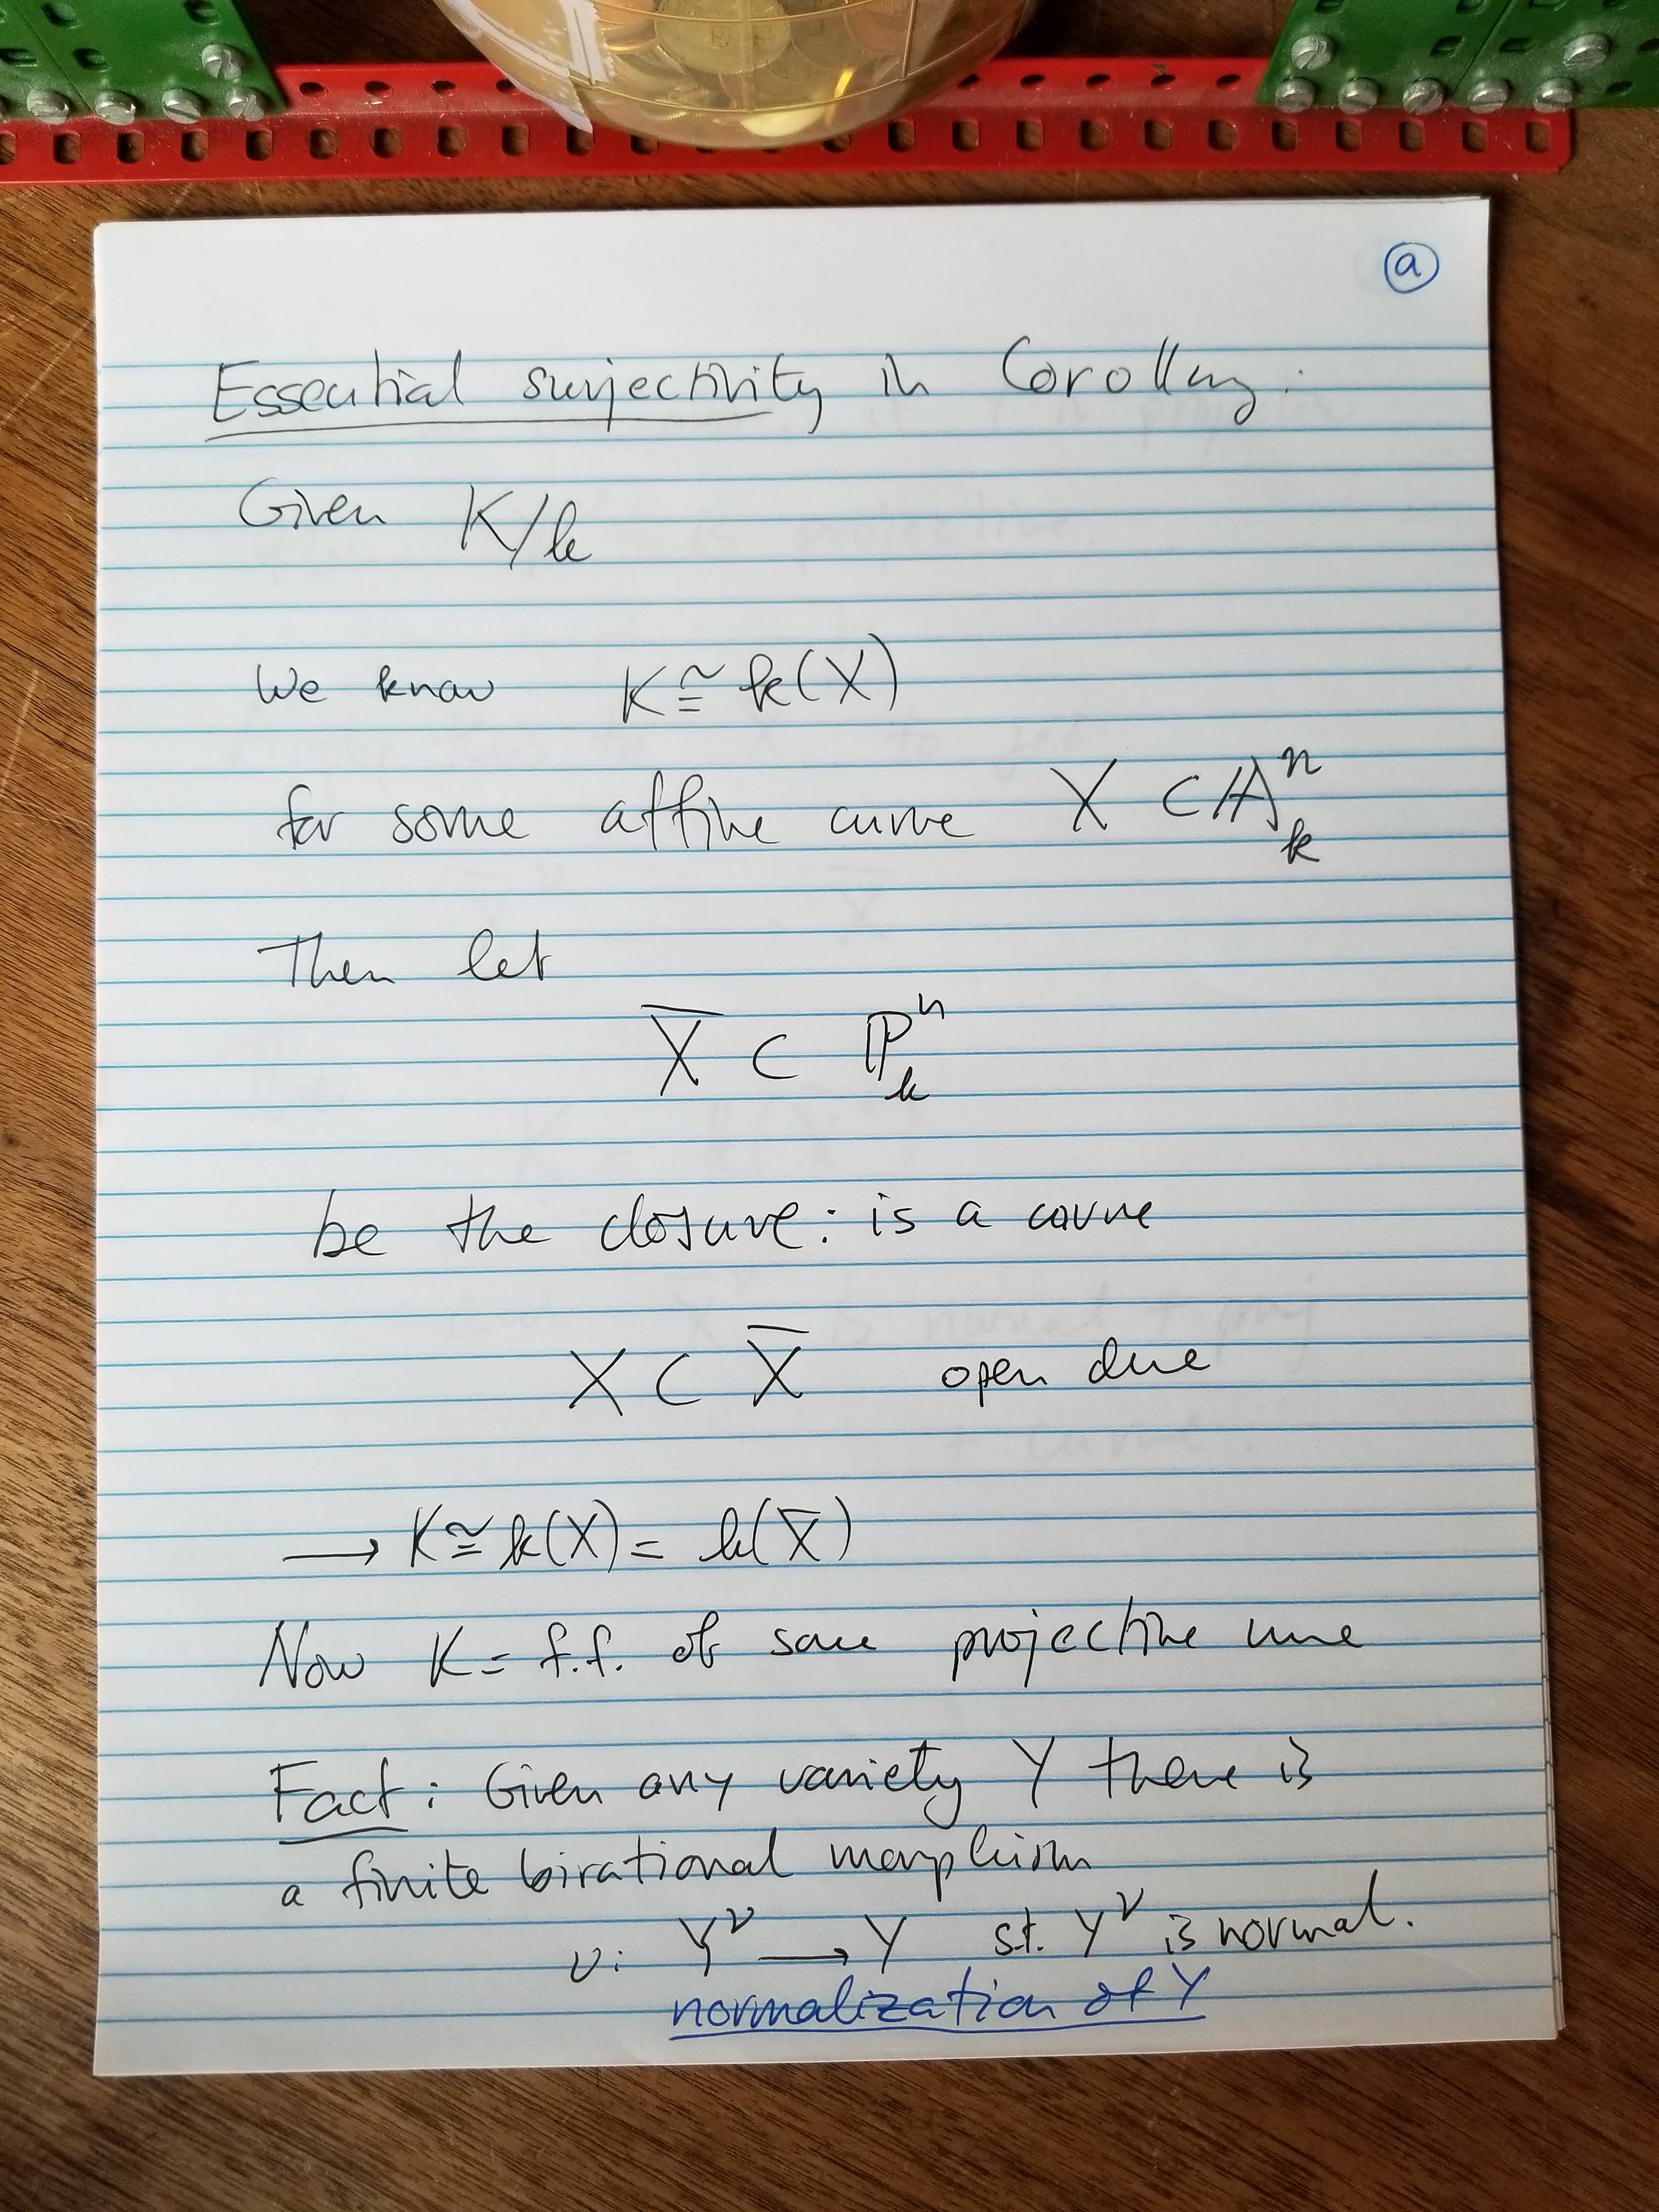 a
Essential surjectivity in Corollary:
Given K/k
We know K ≅ k(X)
for some affine curve X ⊂ 𝔸ⁿₖ
Then let
X̅ ⊂ ℙⁿₖ
be the closure: is a curve
X ⊂ X̅ open due
⟶ K ≅ k(X) = k(X̅)
Now K = f.f. of some projective curve
Fact: Given any variety Y there is
a finite birational morphism
ν: Y^ν ⟶ Y s.t. Y^ν is normal.
normalization of Y